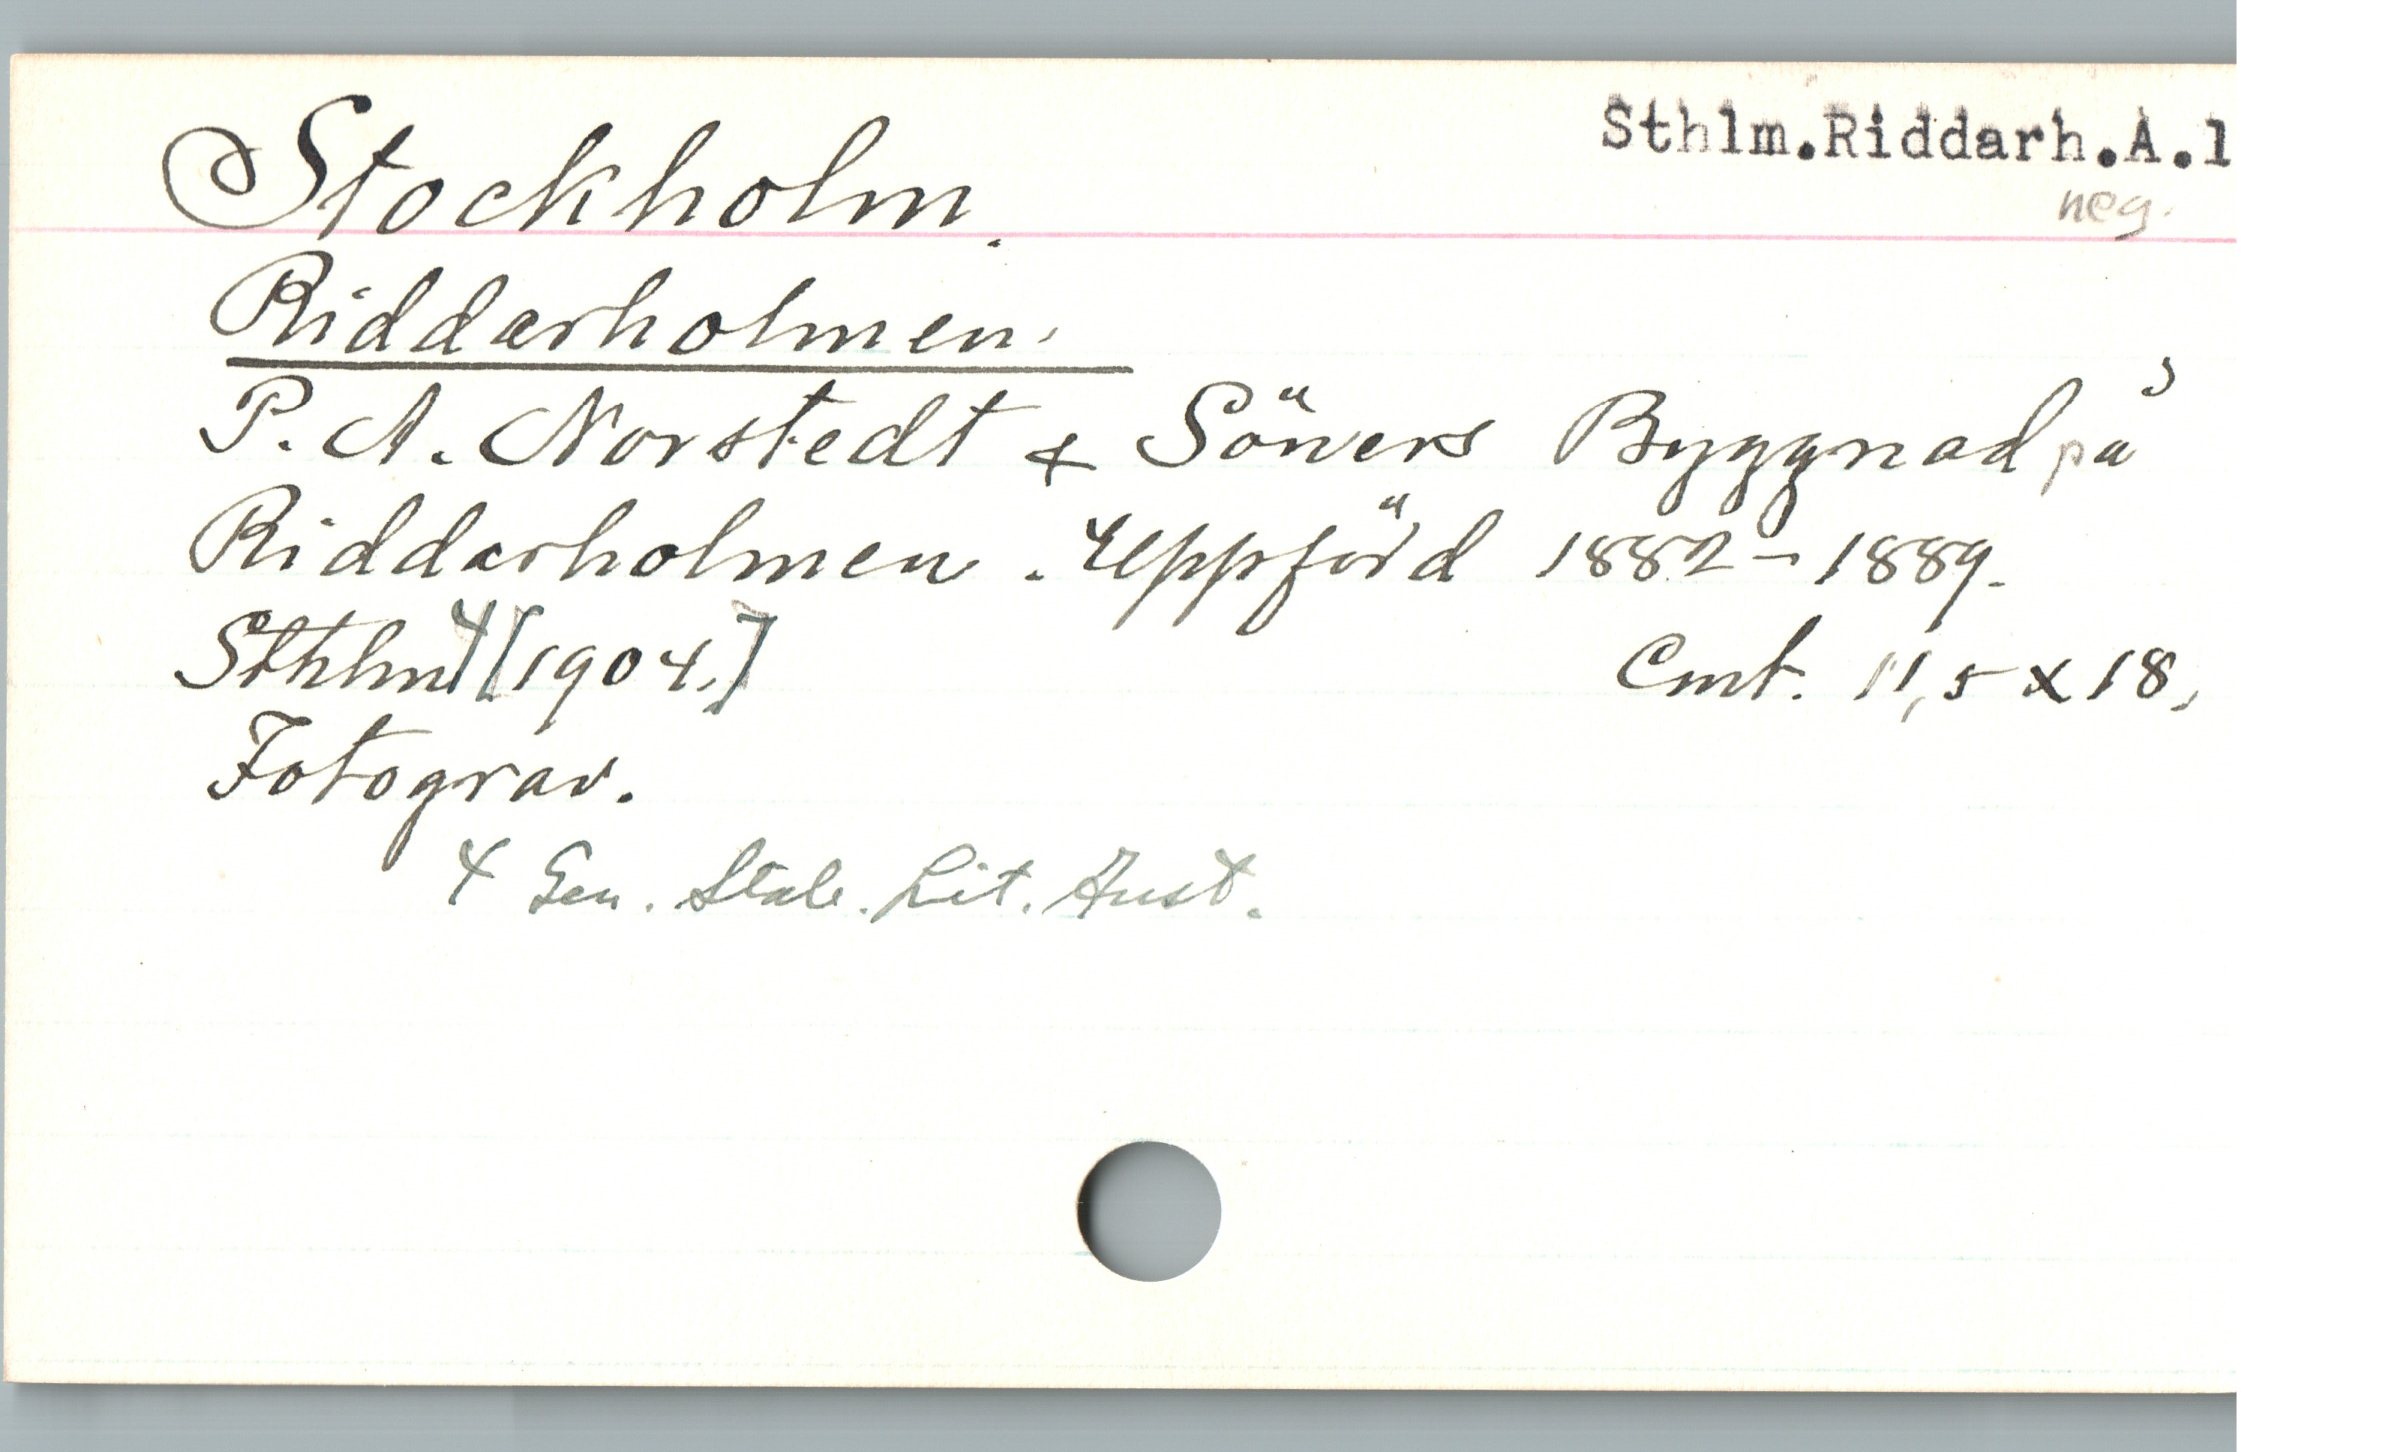 Sthlm.Riddarh.A.1
neg.
Stockholm.
Riddarholmen.
P. A. Norstedt & Söners Byggnad på
Riddarholmen. Uppförd 1882-1889.
Sthlm [1904.] Cmt. 11,5 x 18.
Fotograv.
x Gen. Stab. Lit. Anst.